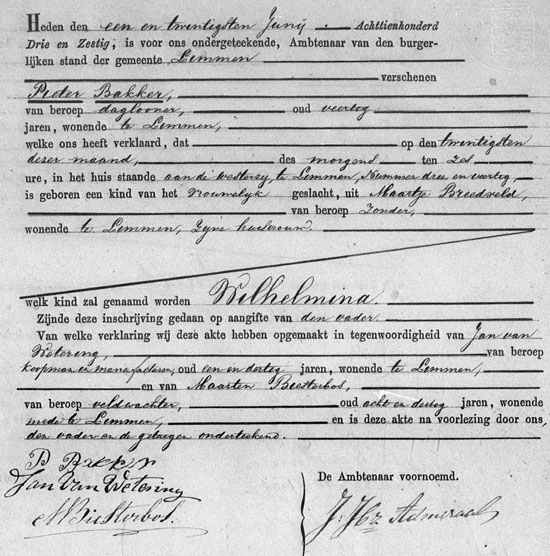 Heden den een en twintigsten Junij Achttienhonderd
Drie en Zestig, is voor ons ondergeteekende, Ambtenaar van den burger-
lijken stand der gemeente Limmen
verschenen
Pieter Bakker,
van beroep daglooner, oud veertig
jaren, wonende te Limmen,
welke ons heeft verklaard, dat op den twintigsten
dezer maand, des morgens ten zes
ure, in het huis staande aan de westerzy, te Limmen, Nummer drie en veertig,
is geboren een kind van het vrouwelyk geslacht, uit Maartje Breedveld,
van beroep zonder,
wonende te Limmen, zyne huisvrouw.
welk kind zal genaamd worden Wilhelmina.
Zijnde deze inschrijving gedaan op aangifte van den vader.
Van welke verklaring wij deze akte hebben opgemaakt in tegenwoordigheid van Jan van
Wetering, van beroep
koopman in manufacturen, oud een en dertig jaren, wonende te Limmen,
en van Maarten Biesterbos,
van beroep veldwachter, oud acht en dertig jaren, wonende
mede te Limmen, en is deze akte na voorlezing door ons,
den vader en de getuigen onderteekend.
P Bakker
Jan Van Wetering
M Biesterbos.
De Ambtenaar voornoemd.
Admiraal